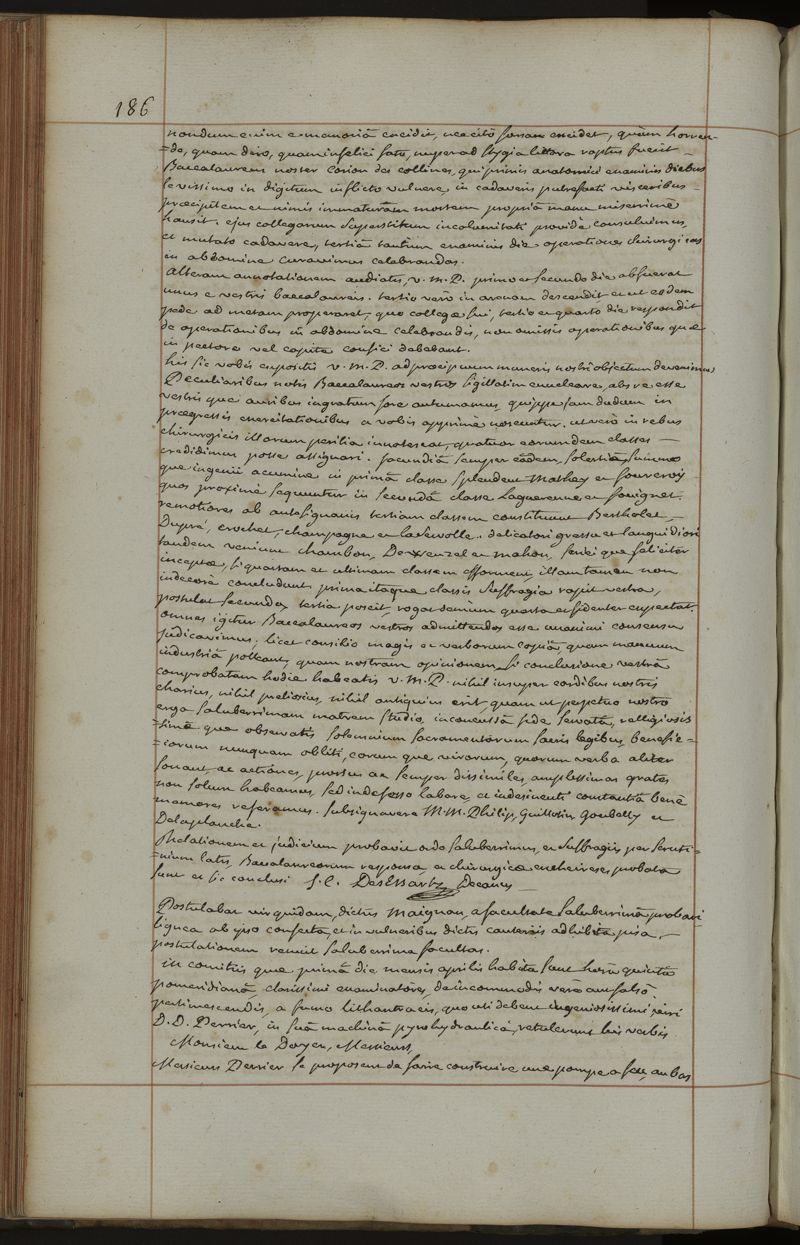 186
nondum enim e memoriâ excidit, nec citò forsan excidet, quàm horren-
=do, quam diro, quam infelici fato, nuper ad stygia littora raptus fuerit
Baccalaureus noster Corion des collines, qui primis anatomici examinis diebus
levissimo in digitum inflicto vulnere, in cadaveris putrefacti visceribus
præcipitem et nimis immaturam mortem propriâ manu miserrime
hausit. ejus collegarum superstitum incolumitati providè consuluimus,
et mutato cadavere, tertiâ tantum examinis die operationes chirurgicas
in abdomine curavimus celebrandas.
Alteram annotationem audiatis, v. m. D. primo et secundo die abfuerat
unus e vestris baccalaureis. tertio verò in arenam descendit et ut eodem
pede ad metam properaret, quo collegæ sui, tertio et quarto die respondit
de operationibus in abdomine celebrandis, non omissis operationibus quæ
in pectore vel capite confici debebant.
his sic vobis expositis v. m. D. ad præcipuum muneris nostri objectum devenimus
Peculiaribus notis Baccalaureos vestros sigillatim enucleare, abs re esse
vestris que auribus ingratum fore autumamus, quippe jam dudum in
prægressis exercitationibus a vobis apprimè noscuntur. ut verò in rebus
chirurgicis illorum peritia innotescat, quatuor eorumdem classes
credidimus posse assignari. facundiâ semper eâdem, solertiâ summo
que ingenii acumine in primâ classe splendent Mathey et fourcroy
quos proximè sequuntur in secundâ classe Laguerenne et souignet.
remotiores ab antesignanis tertiam classem constituunt Bertholet,
Dupré, crochet, champagne et Laservolle. delicatori gressu et languidiori
tandem veniunt chambon, De Wenzel et mahon, sensi que feliciter
incepta, si quartam et ultimam classem efforment, illam tamen non
indecorè concludunt. prima itaque classis suffragia rapit vestra,
postulat secunda, tertia poscit, rogat veniam quarta et fidenter expectat.
omnes igitur Baccalaureos vestros admittendos esse unanimi consensu
judicavimus. licet consilio magis et verborum copiâ, quam manuum
industriâ polleant, quam nostram opinionem si conclusione vestrâ
comprobatam hodie habeatis v. m. D. nihil insuper cordibus nostris
charius, nihil pretiosius, nihil antiquius erit, quam ut perpetuo nostro
erga saluberrimam matrem studio, inconcussâ fide servatâ, religiosis
=simè que observatis solemnium sacramentorum sacris legibus, benefic=
=iorum nunquam obliti, eorum que virorum, quorum verba aliter
sonant, ac actiones, prorsus ac semper dissimiles, amplissimas grates
non solum habeamus, sed indefesso labore, et indesinenti constantiâ benè
memores referamus. subsignavere M.M. Philip, Guillotin, Goubelly et
Delaplanche.
Relationem et judicium probavit ordo saluberrimus, et suffragiis per scruti=
=nium latis, Baccalaureorum responsa, et chirurgicæ encheireses probatæ
sunt et sic conclusi J. C. DesEssartz Decanus
Postulabat vir quidam, dictus Maignan, a facultate saluberrimâ probari
lignea ab ipso confecta, et in vulneribus dictis cauteriis adhibita, pisa,
postulationem renuit saluberrima facultas.
in comitiis quæ primâ die mensis aprilis habita sunt horâ quintâ
pomeridianâ, clarissimi examinatores, de incommodis verò an falsò
pertimescendis, a fumo lithantracis, quo uti debent ingeniosissimi viri
D.D. Perrier, in suâ machinâ pyrohydraulicâ, retulerunt his verbis
Monsieur le Doyen, Messieurs,
Messieurs Perrier se proposent de faire construire une pompe a feu, au bas